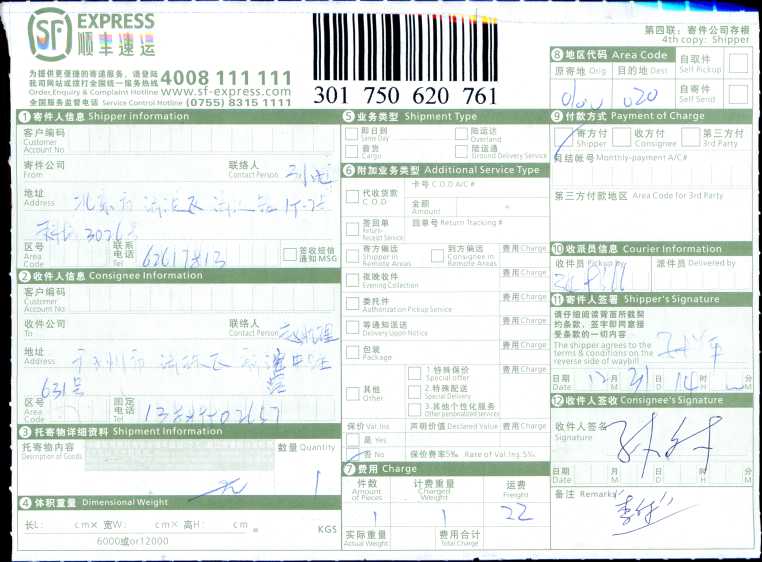 SF EXPRESS
顺丰速运
为提供更便捷的寄递服务，请登陆
我司网站或拨打全国统一服务热线
4008 111 111
Order, Enquiry & Complaint Hotline www.sf-express.com
全国服务监督电话 Service Control Hotline (0755) 8315 1111
301 750 620 761
第四联：寄件公司存根
4th copy: Shipper
8 地区代码 Area Code
原寄地 Orig 目的地 Dest
020
自取件
Self Pickup
自寄件
Self Send
1 寄件人信息 Shipper Information
客户编码
Customer
Account No
寄件公司
From
联络人
Contact Person
地址
Address
3026
区号
Area
Code
联系
电话
Tel
62617813
签收短信
通知MSG
2 收件人信息 Consignee Information
客户编码
Customer
Account No
收件公司
To
联络人
Contact Person
地址
Address
631号
区号
Area
Code
固定
电话
Tel
3 托寄物详细资料 Shipment Information
托寄物内容
Description of Goods
数量 Quantity
1
4 体积重量 Dimensional Weight
长L: cm× 宽W: cm× 高H: cm = KGS
6000或or12000
5 业务类型 Shipment Type
即日到
Same Day
陆运达
Overland
普货
Cargo
陆运通
Ground Delivery Service
6 附加业务类型 Additional Service Type
代收货款
C.O.D
卡号 C.O.D A/C #
金额
Amount
签回单
Return
Receipt Service
回单号 Return Tracking #
寄方偏远
Shipper in
Remote Areas
到方偏远
Consignee in
Remote Areas
费用 Charge
夜晚收件
Evening Collection
费用 Charge
委托件
Authorization Pickup Service
费用 Charge
等通知派送
Delivery Upon Notice
费用 Charge
包装
Package
费用 Charge
其他
Other
1.特殊保价
Special offer
2.特殊配送
Special Delivery
3.其他个性化服务
Other personalized services
费用 Charge
保价 Val.Ins 声明价值 Declared Value 费用 Charge
是 Yes
否 No 保价费率5‰ Rate of Val.Ins.5‰
7 费用 Charge
件数
Amount
of Pieces
1
计费重量
Charged
Weight
1
运费
Freight
22
实际重量
Actual Weight
费用合计
Total Charge
9 付款方式 Payment of Charge
寄方付
Shipper
收方付
Consignee
第三方付
3rd Party
月结帐号 Monthly-payment A/C#
第三方付款地区 Area Code for 3rd Party
10 收派员信息 Courier Information
收件员 Pickup by
派件员 Delivered by
11 寄件人签署 Shipper's Signature
请仔细阅读背面所载契
约条款，签字即同意接
受条款的一切内容
The shipper agrees to the
terms & conditions on the
reverse side of waybill
日期 Date 12 月 M 31 日 D 14 时 H 分 M
12 收件人签收 Consignee's Signature
收件人签名
Signature
日期 Date 月 M 日 D 时 H 分 M
备注 Remarks